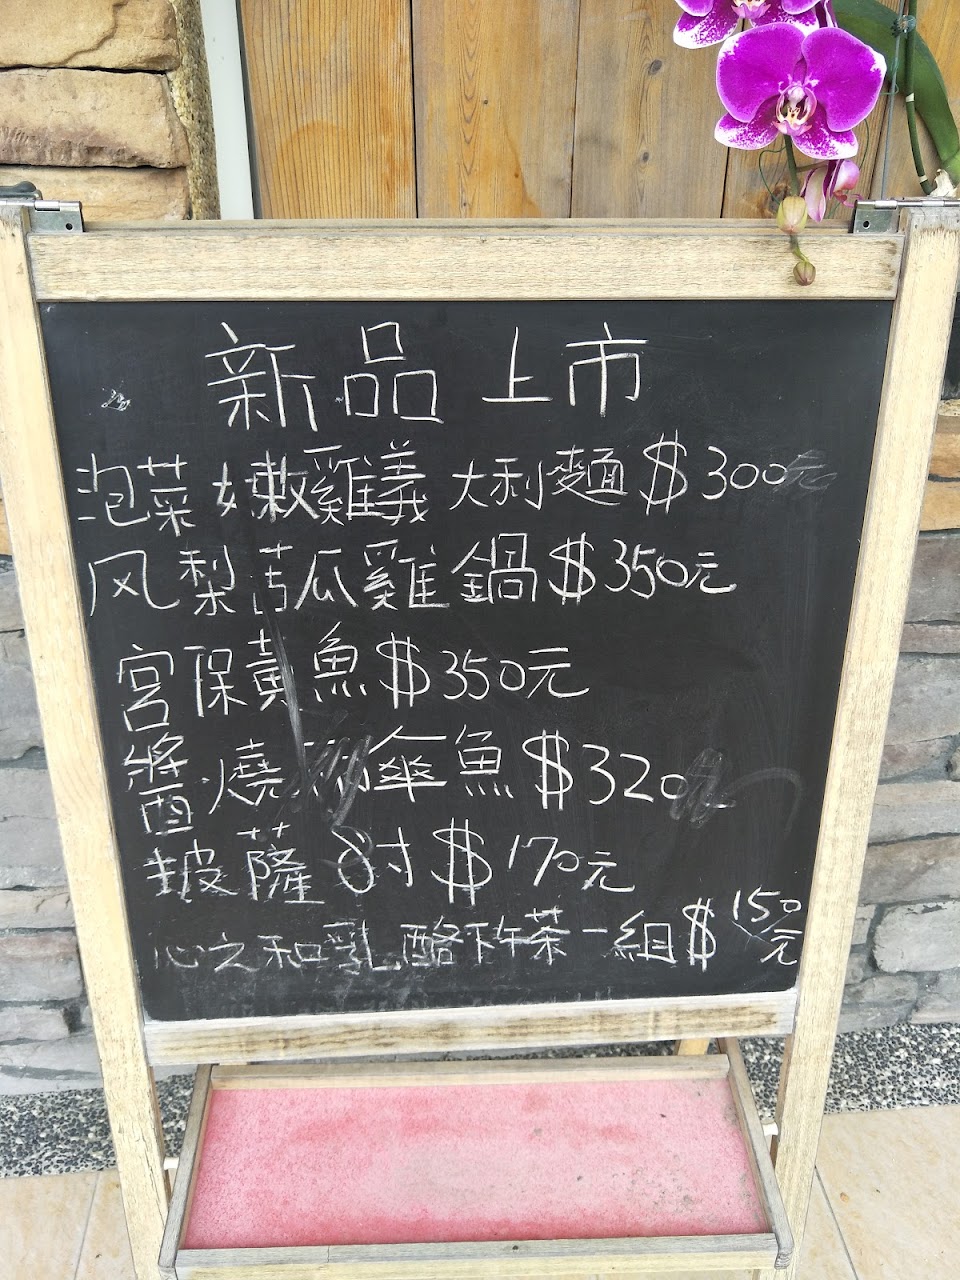 新品上市
泡菜嫩雞義大利麵$300元
风梨苦瓜雞鍋$350元
宮保黃魚$350元
醬燒傘魚$320
披薩8吋$170元
沁之和乳酪下午茶一組$150元